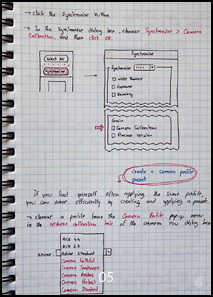 → click the Synchronise button.
→ In the Synchronise dialog box, choose Synchronise > Camera
Calibration, and then click OK.
Select All
Synchronise
Synchronise
Synchronise
White Balance
Exposure
Grain
Camera Calibration
Process Version
Create a camera profile
preset
If you find yourself often applying the same profile,
you can work efficiently by creating and applying a preset.
→ choose a profile from the Camera Profile pop-up menu
in the camera calibration tab of the camera raw dialog box
ACR 4.4
Name:
Adobe Standard
Camera Faithful
Camera Landscape
Camera Neutral
Camera Portrait
Camera Standard
05